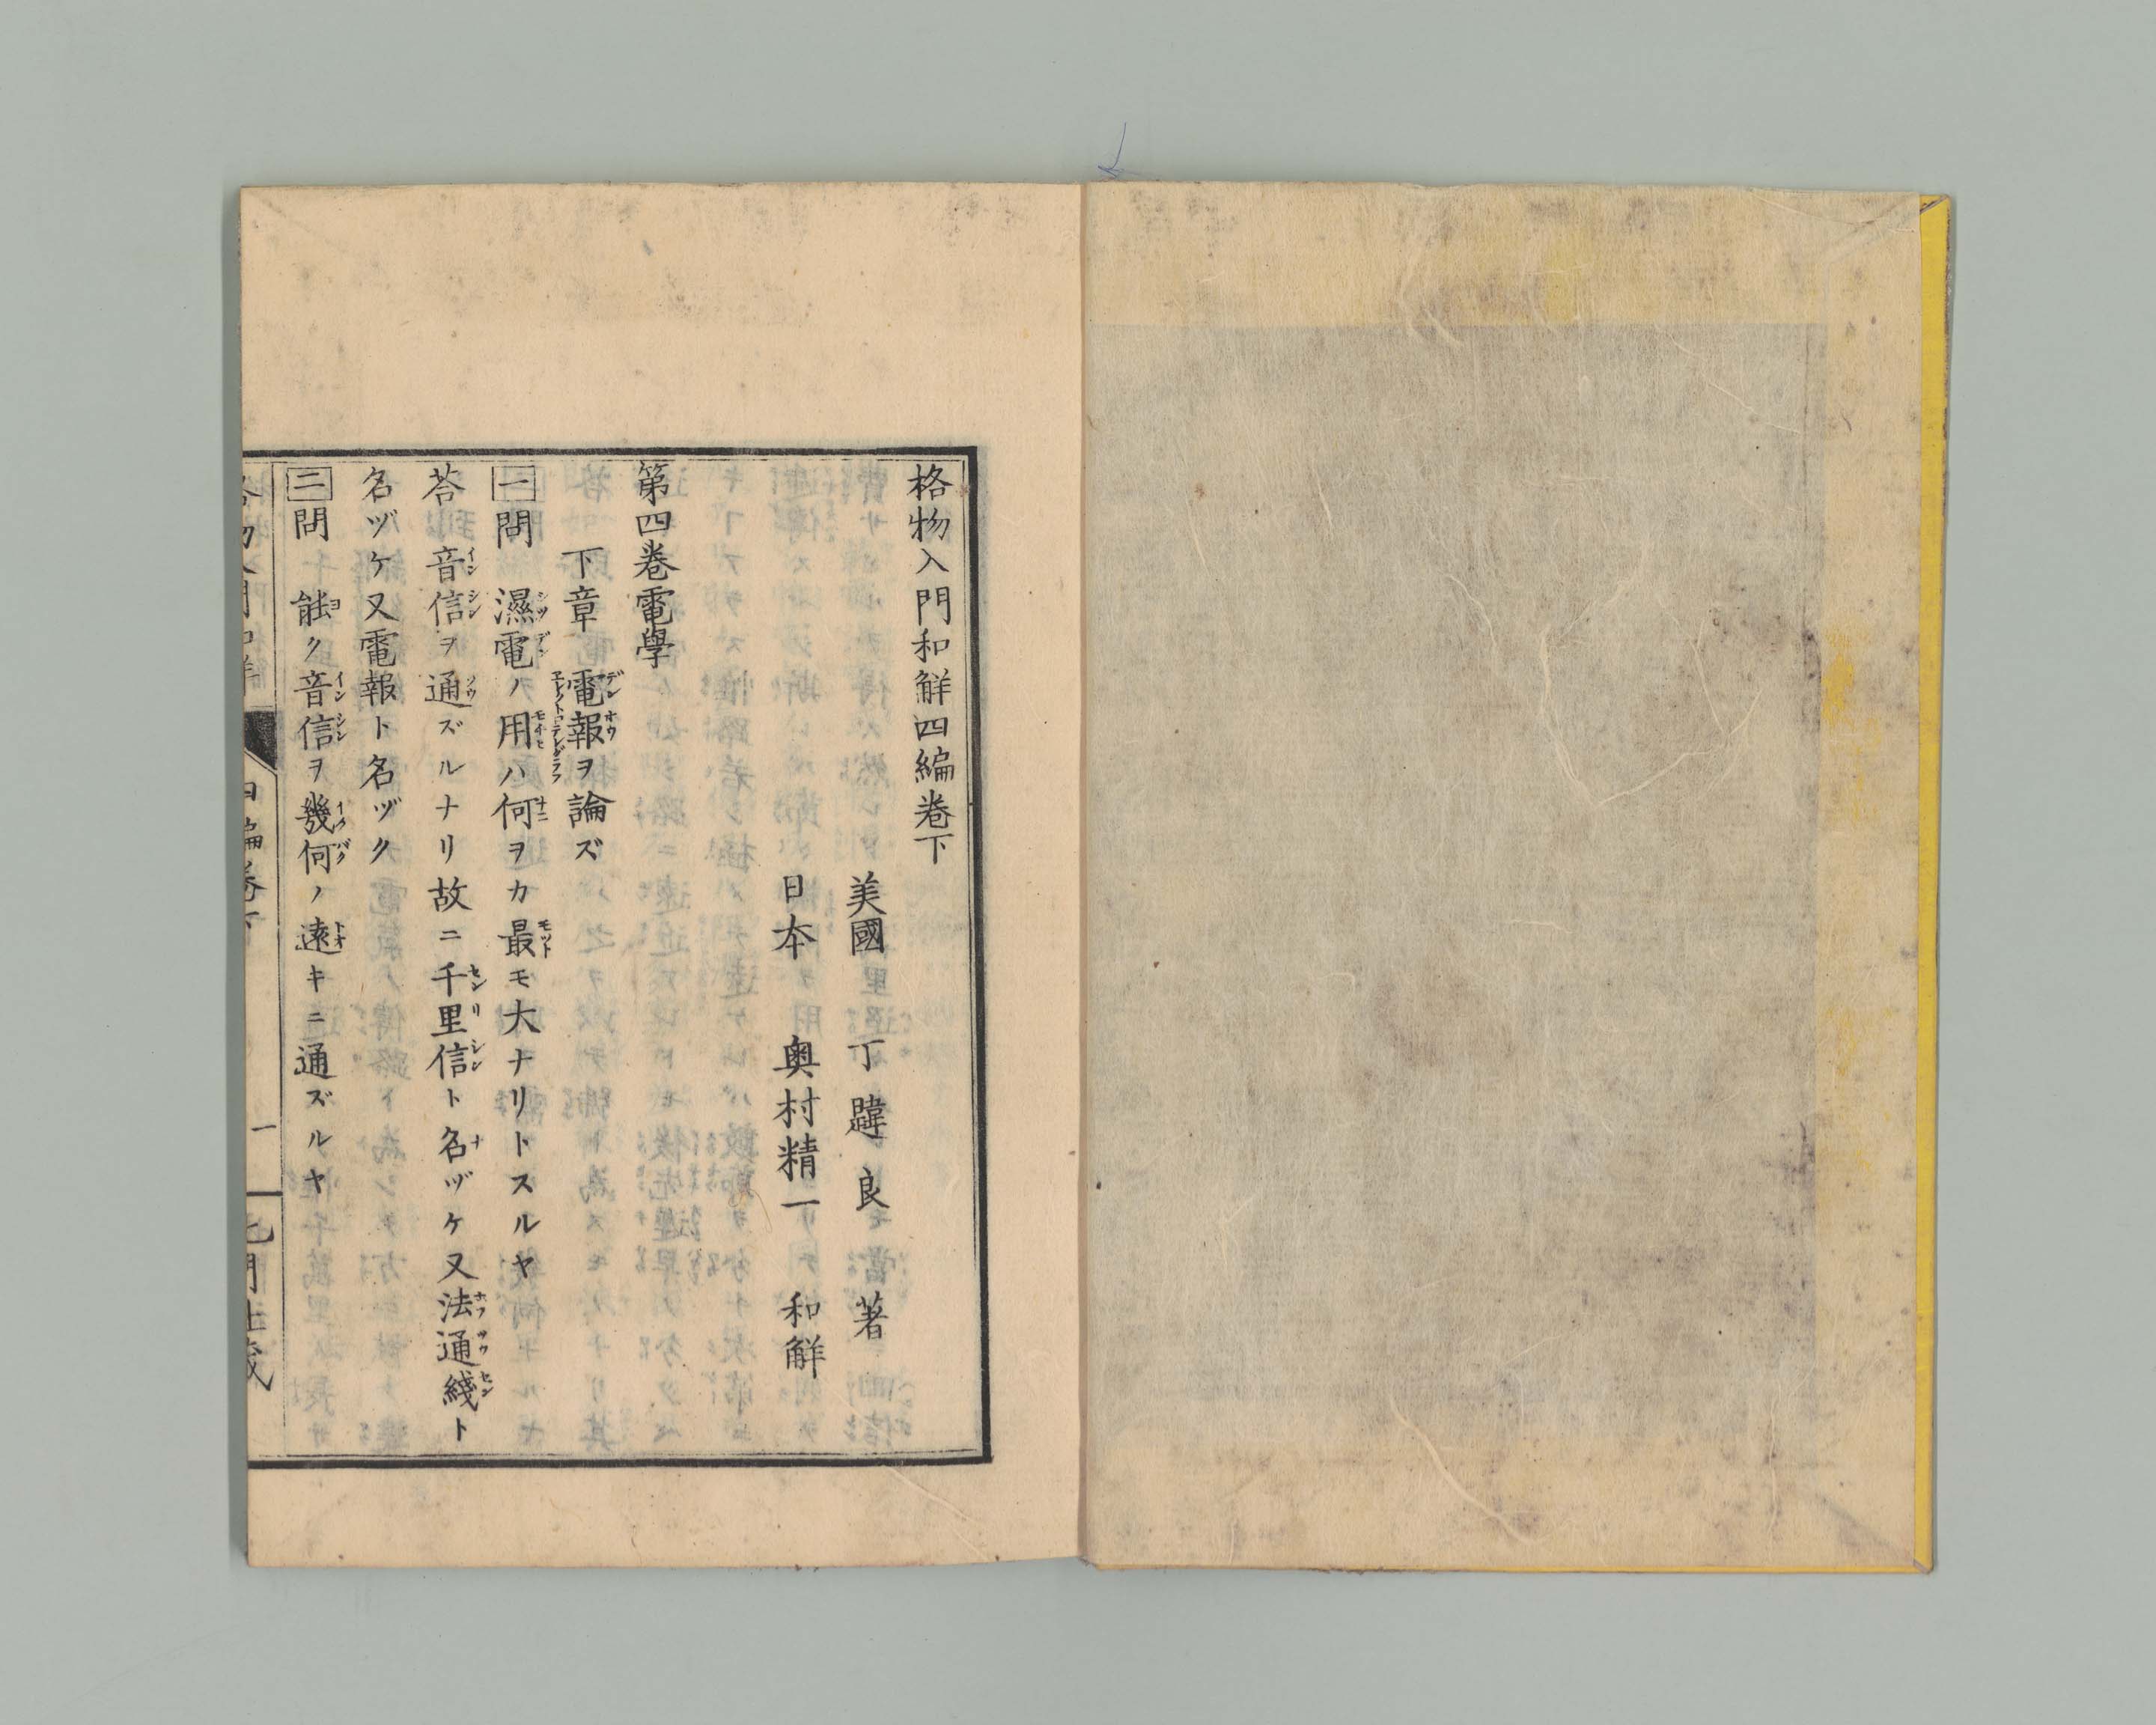 格物入門和解四編巻下
美國　丁韙良　著
日本　奥村精一　和解
第四巻電學
下章　電報ヲ論ズ
一問　濕電ノ用ハ何ヲカ最モ大ナリトスルヤ
荅　音信ヲ通ズルナリ故ニ千里信ト名ヅケ又法通綫ト
名ヅケ又電報ト名ヅク
二問　能ク音信ヲ幾何ノ遠キニ通ズルヤ
四編巻下　一